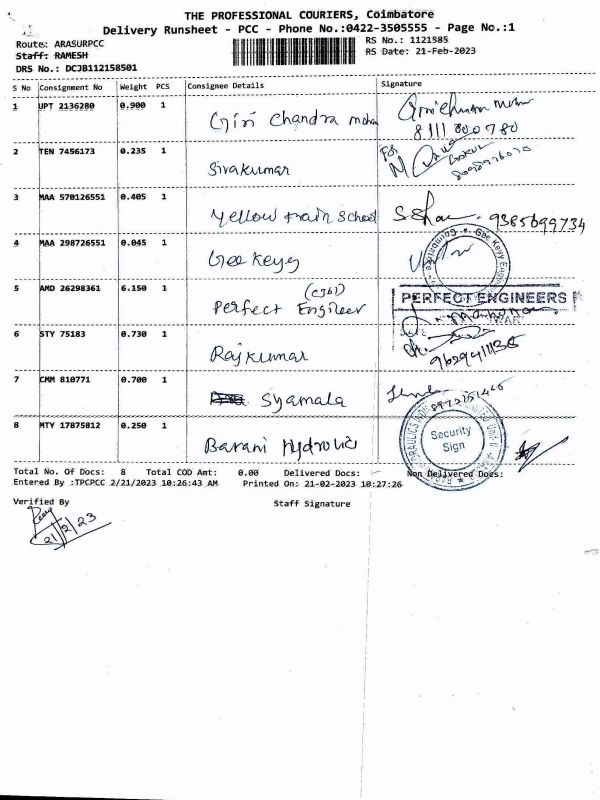 THE PROFESSIONAL COURIERS, Coimbatore
Delivery Runsheet - PCC - Phone No.:0422-3505555 - Page No.:1
Route: ARASURPCC
RS No.: 1121585
Staff: RAMESH
RS Date: 21-Feb-2023
DRS No.: DCJB112158501
S No Consignment No Weight PCS Consignee Details Signature
1 UPT 2136280 0.900 1 Giri Chandra mohan
8111 800 780
2 TEN 7456173 0.235 1 Sivakumar
For
3 MAA 570126551 0.405 1 Yellow train School 9385699734
4 MAA 298726551 0.045 1 Gee Keyy
5 AMD 26298361 6.150 1 Perfect Engineer
PERFECT ENGINEERS
6 STY 75183 0.730 1 Rajkumar
7 CMM 810771 0.700 1 Syamala
8 MTY 17875812 0.250 1 Barani Hydrolic
Security
Sign
Total No. Of Docs: 8 Total COD Amt: 0.00 Delivered Docs: Non Delivered Docs:
Entered By :TPCPCC 2/21/2023 10:26:43 AM Printed On: 21-02-2023 10:27:26
Verified By Staff Signature
21/2/23